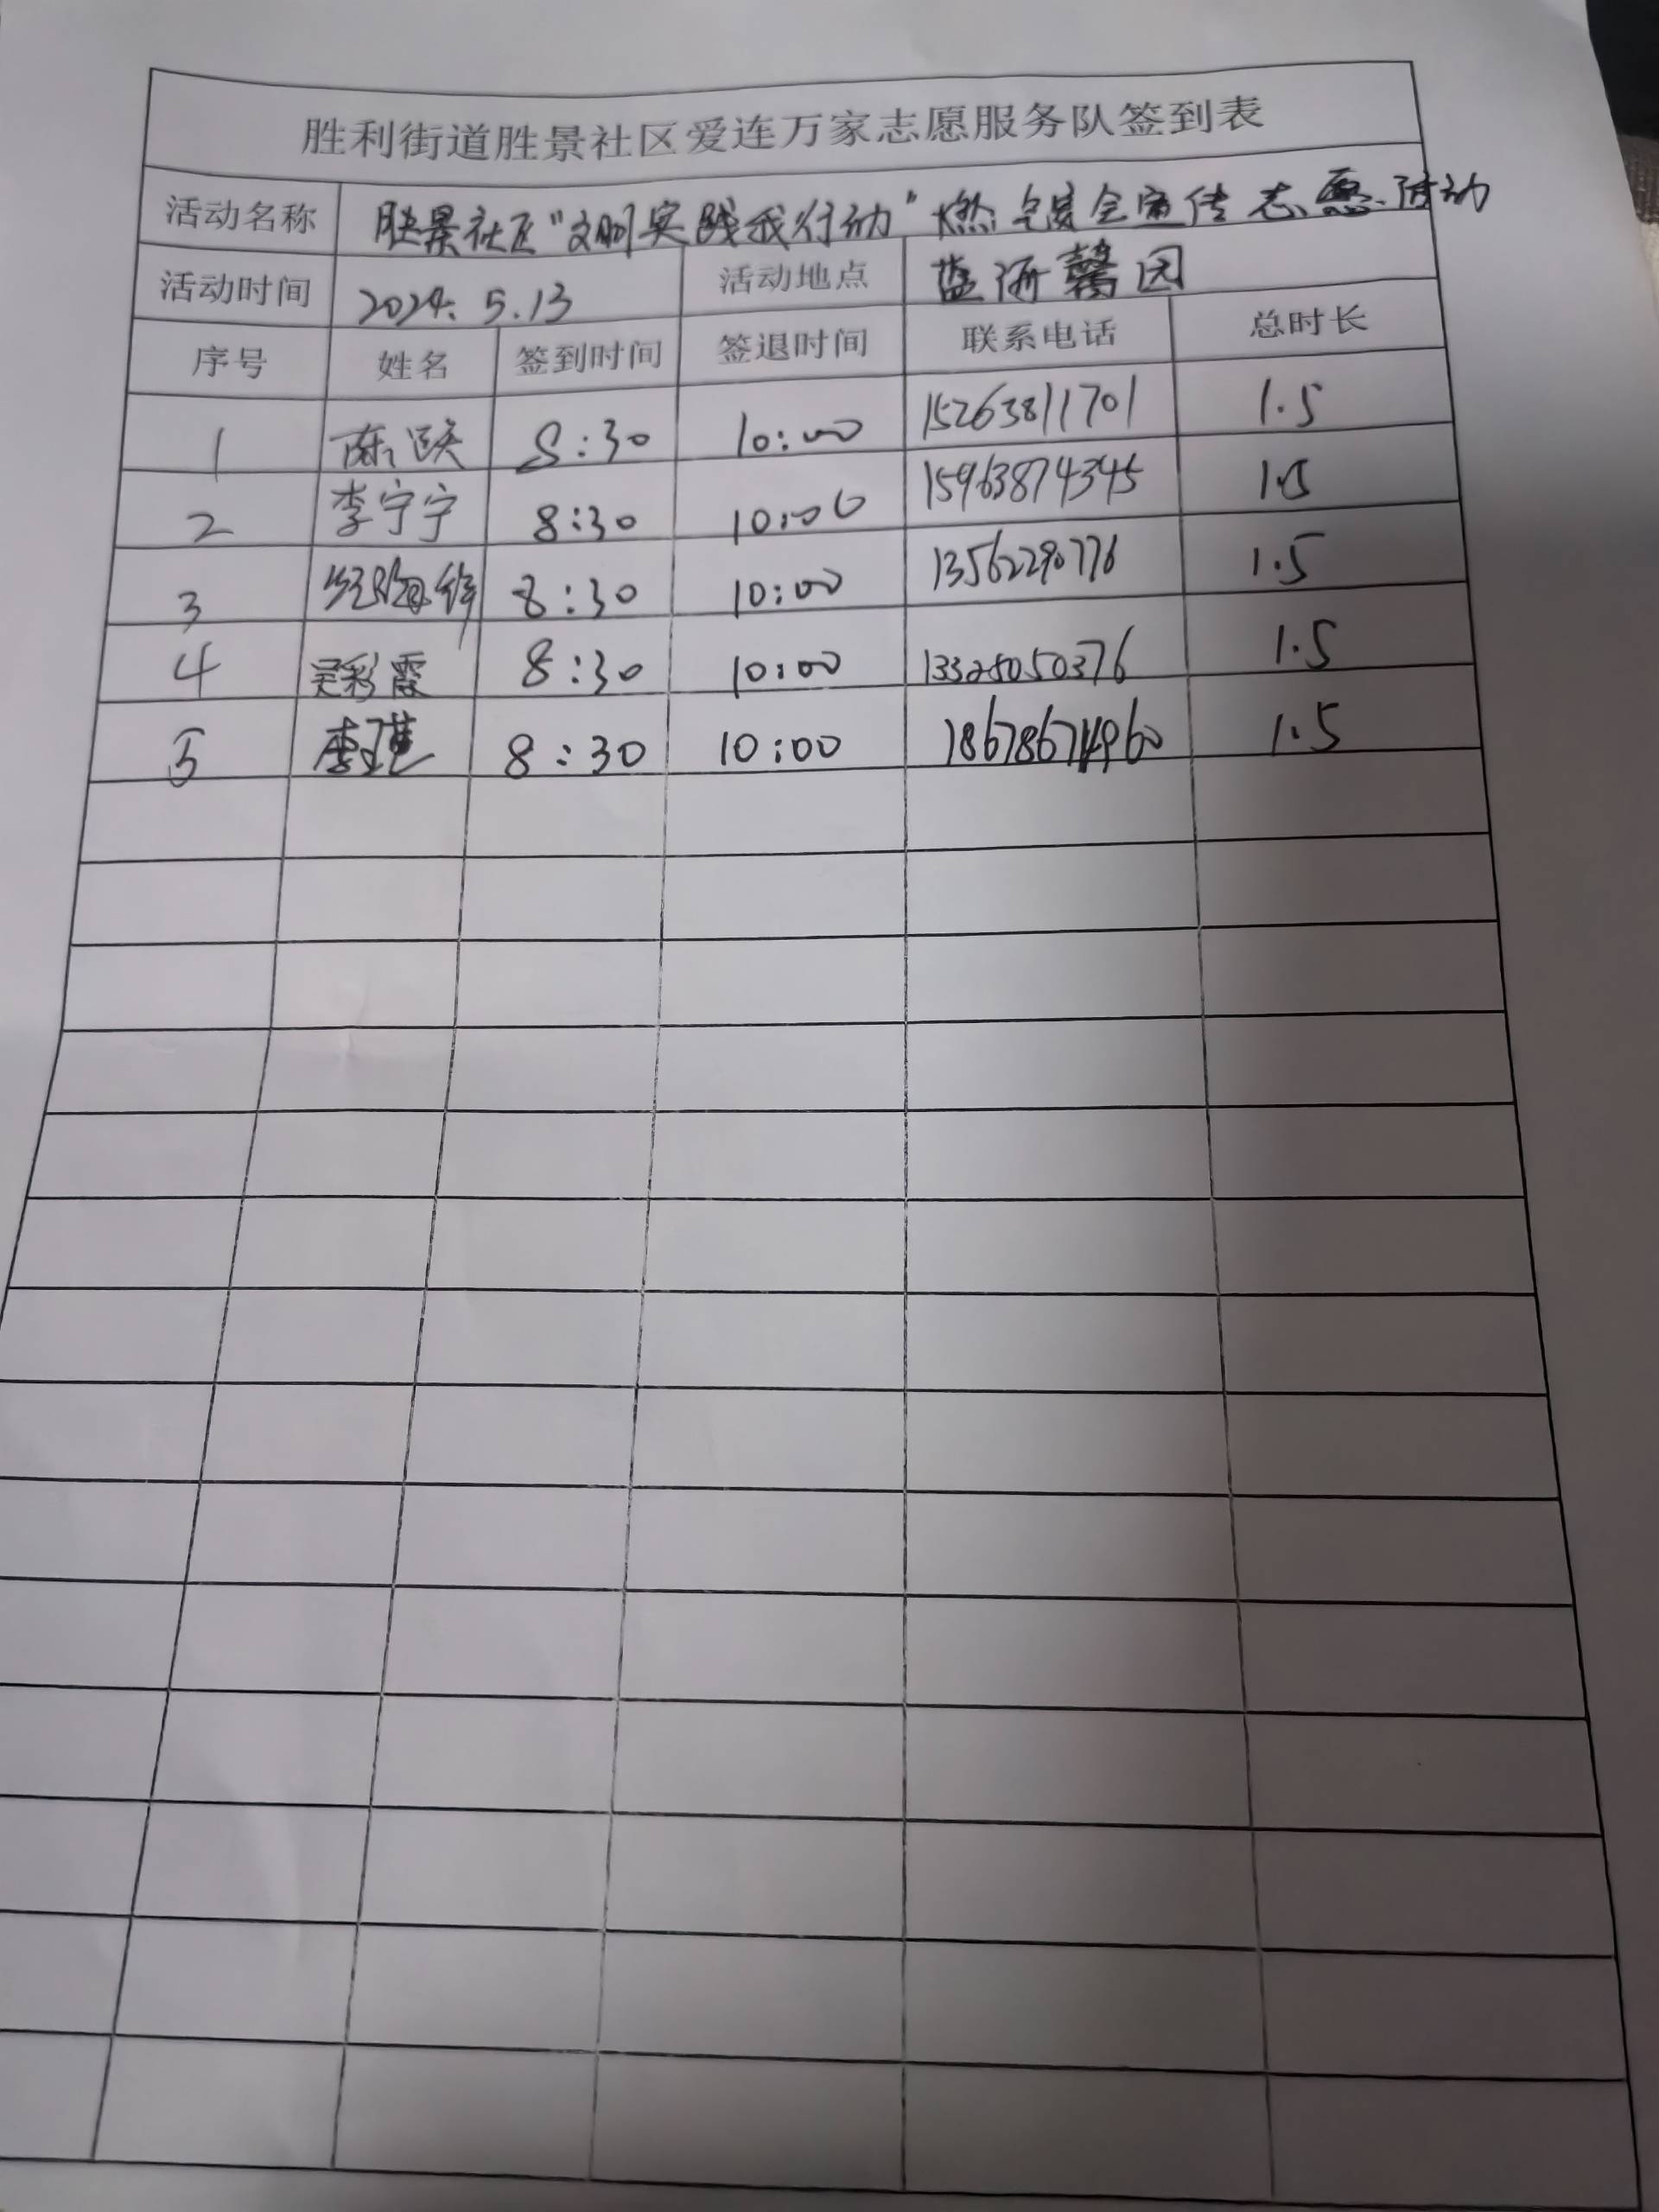 胜利街道胜景社区爱连万家志愿服务队签到表
活动名称 胜景社区"文明实践我行动"燃气安全宣传志愿活动
活动时间 2024.5.13 活动地点 蓝海馨园
序号 姓名 签到时间 签退时间 联系电话 总时长
1 陈跃 8:30 10:00 15263811701 1.5
2 李宁宁 8:30 10:00 15963874345 1.5
3 8:30 10:00 13562290776 1.5
4 吴彩霞 8:30 10:00 13325050376 1.5
5 李琪 8:30 10:00 1.5